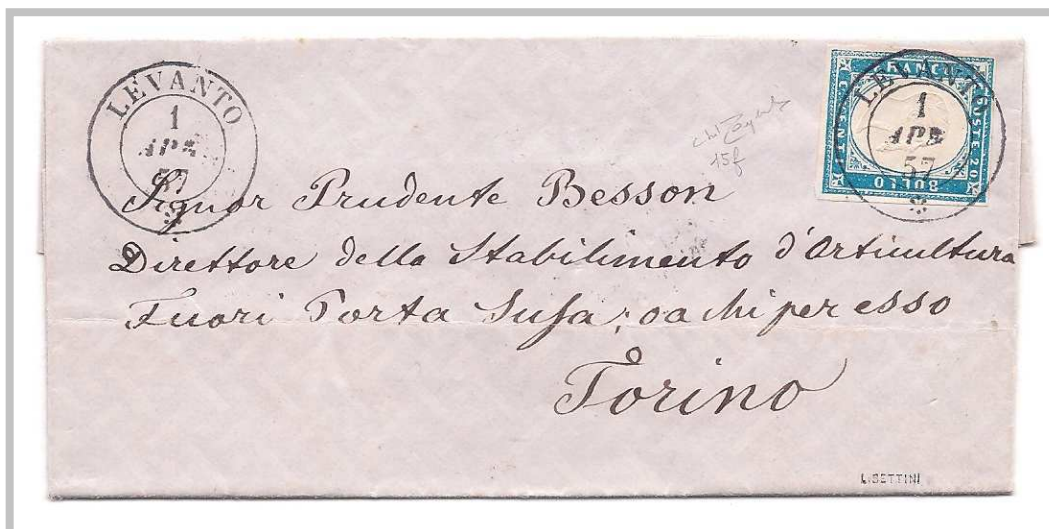 LEVANTO
1
APR
57
LEVANTO
1
APR
57
FRANCO
POSTE 20
BOLLO
CENT
15f
Signor Prudente Besson
Direttore dello Stabilimento d'Orticultura
Fuori Porta Susa; o a chi per esso
Torino
L.SETTINI